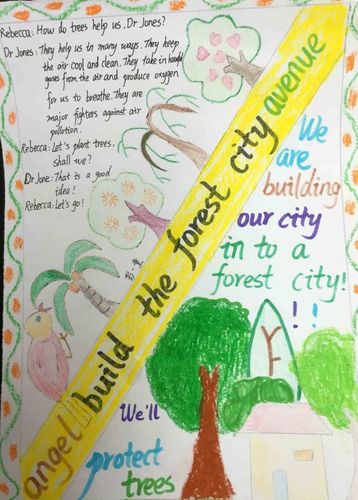 Rebecca: How do trees help us, Dr Jones?
Dr Jones: They help us in many ways. They keep
the air cool and clean. They take in harmful
gases from the air and produce oxygen
for us to breathe. They are
major fighters against air
pollution.
Rebecca: Let's plant trees,
shall we?
Dr Jone: That is a good
idea!
Rebecca: Let's go!
angel build the forest city avenue
We
are
building
our city
in to a
forest city!
!!
We'll
protect
trees